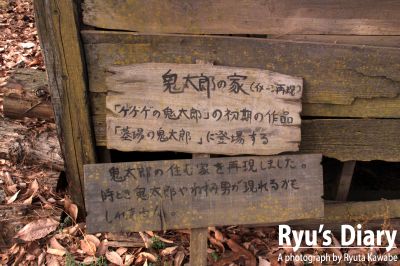 鬼太郎の家(イメージ再現)
「ゲゲゲの鬼太郎」の初期の作品
「墓場の鬼太郎」に登場する
鬼太郎の住む家を再現しました。
時どき鬼太郎やねずみ男が現れるかも
しれません。
Ryu's Diary
A photograph by Ryuta Kawabe